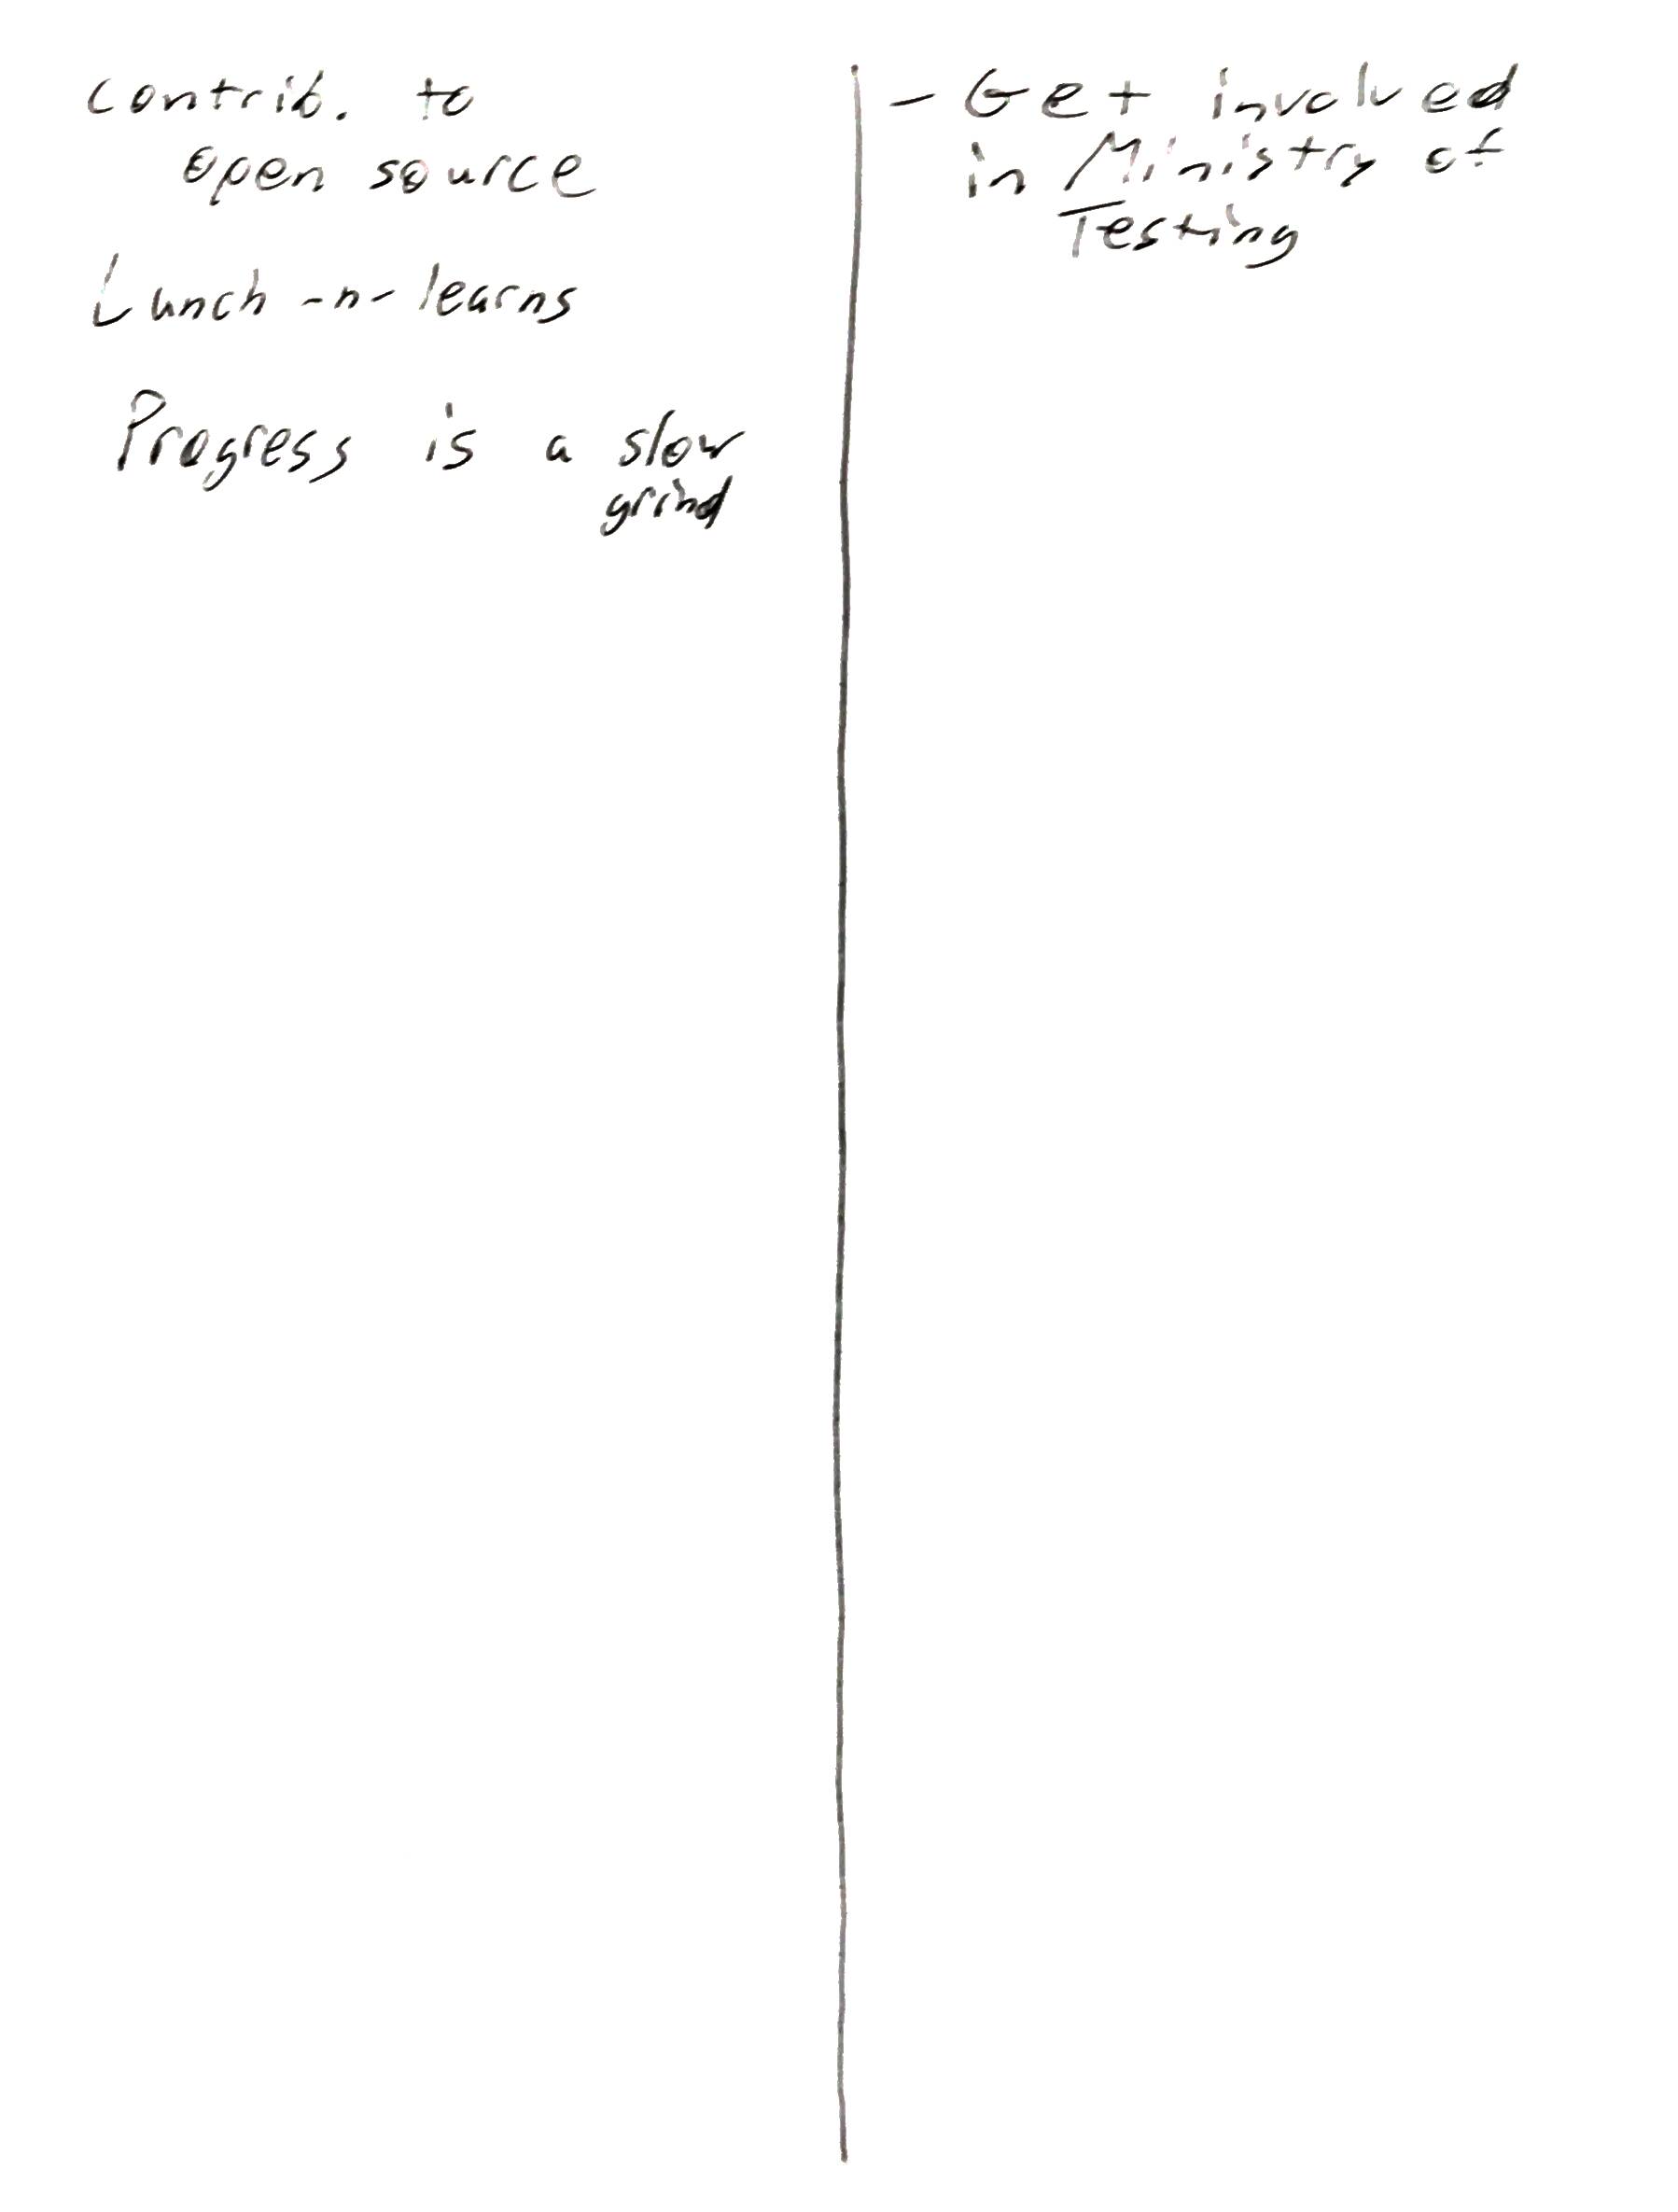 Contrib. to
open source
Lunch-n-learns
Progress is a slow
grind
- Get involved
in Ministry of
Testing